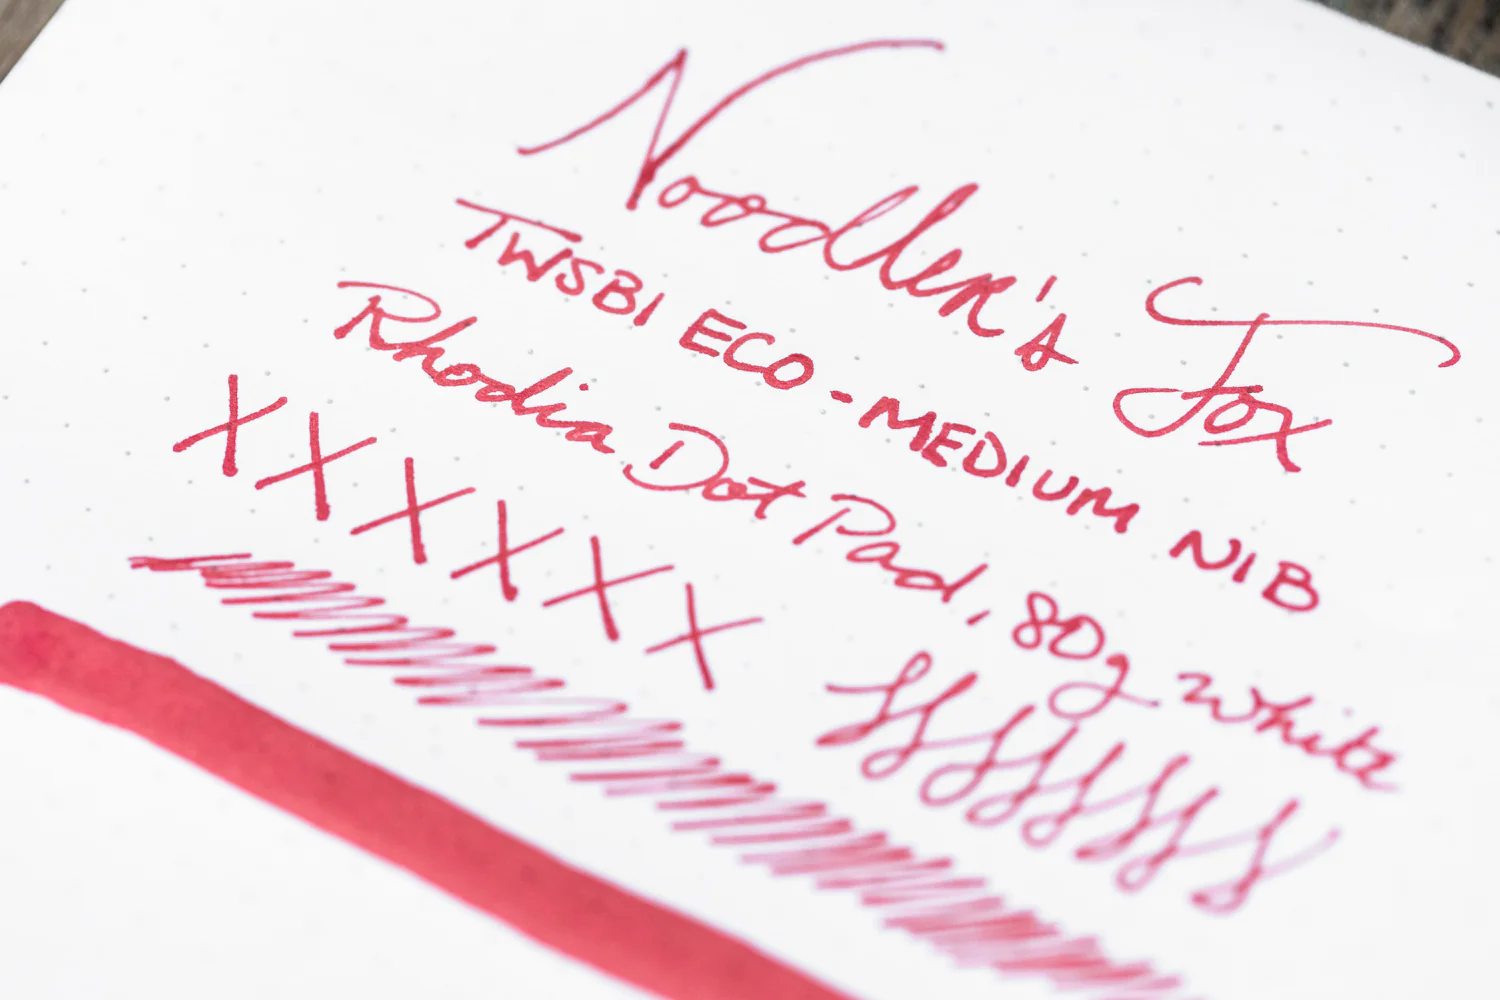 Noodler's Fox
TWSBI ECO - MEDIUM NIB
Rhodia Dot Pad, 80g white
XXXXXX